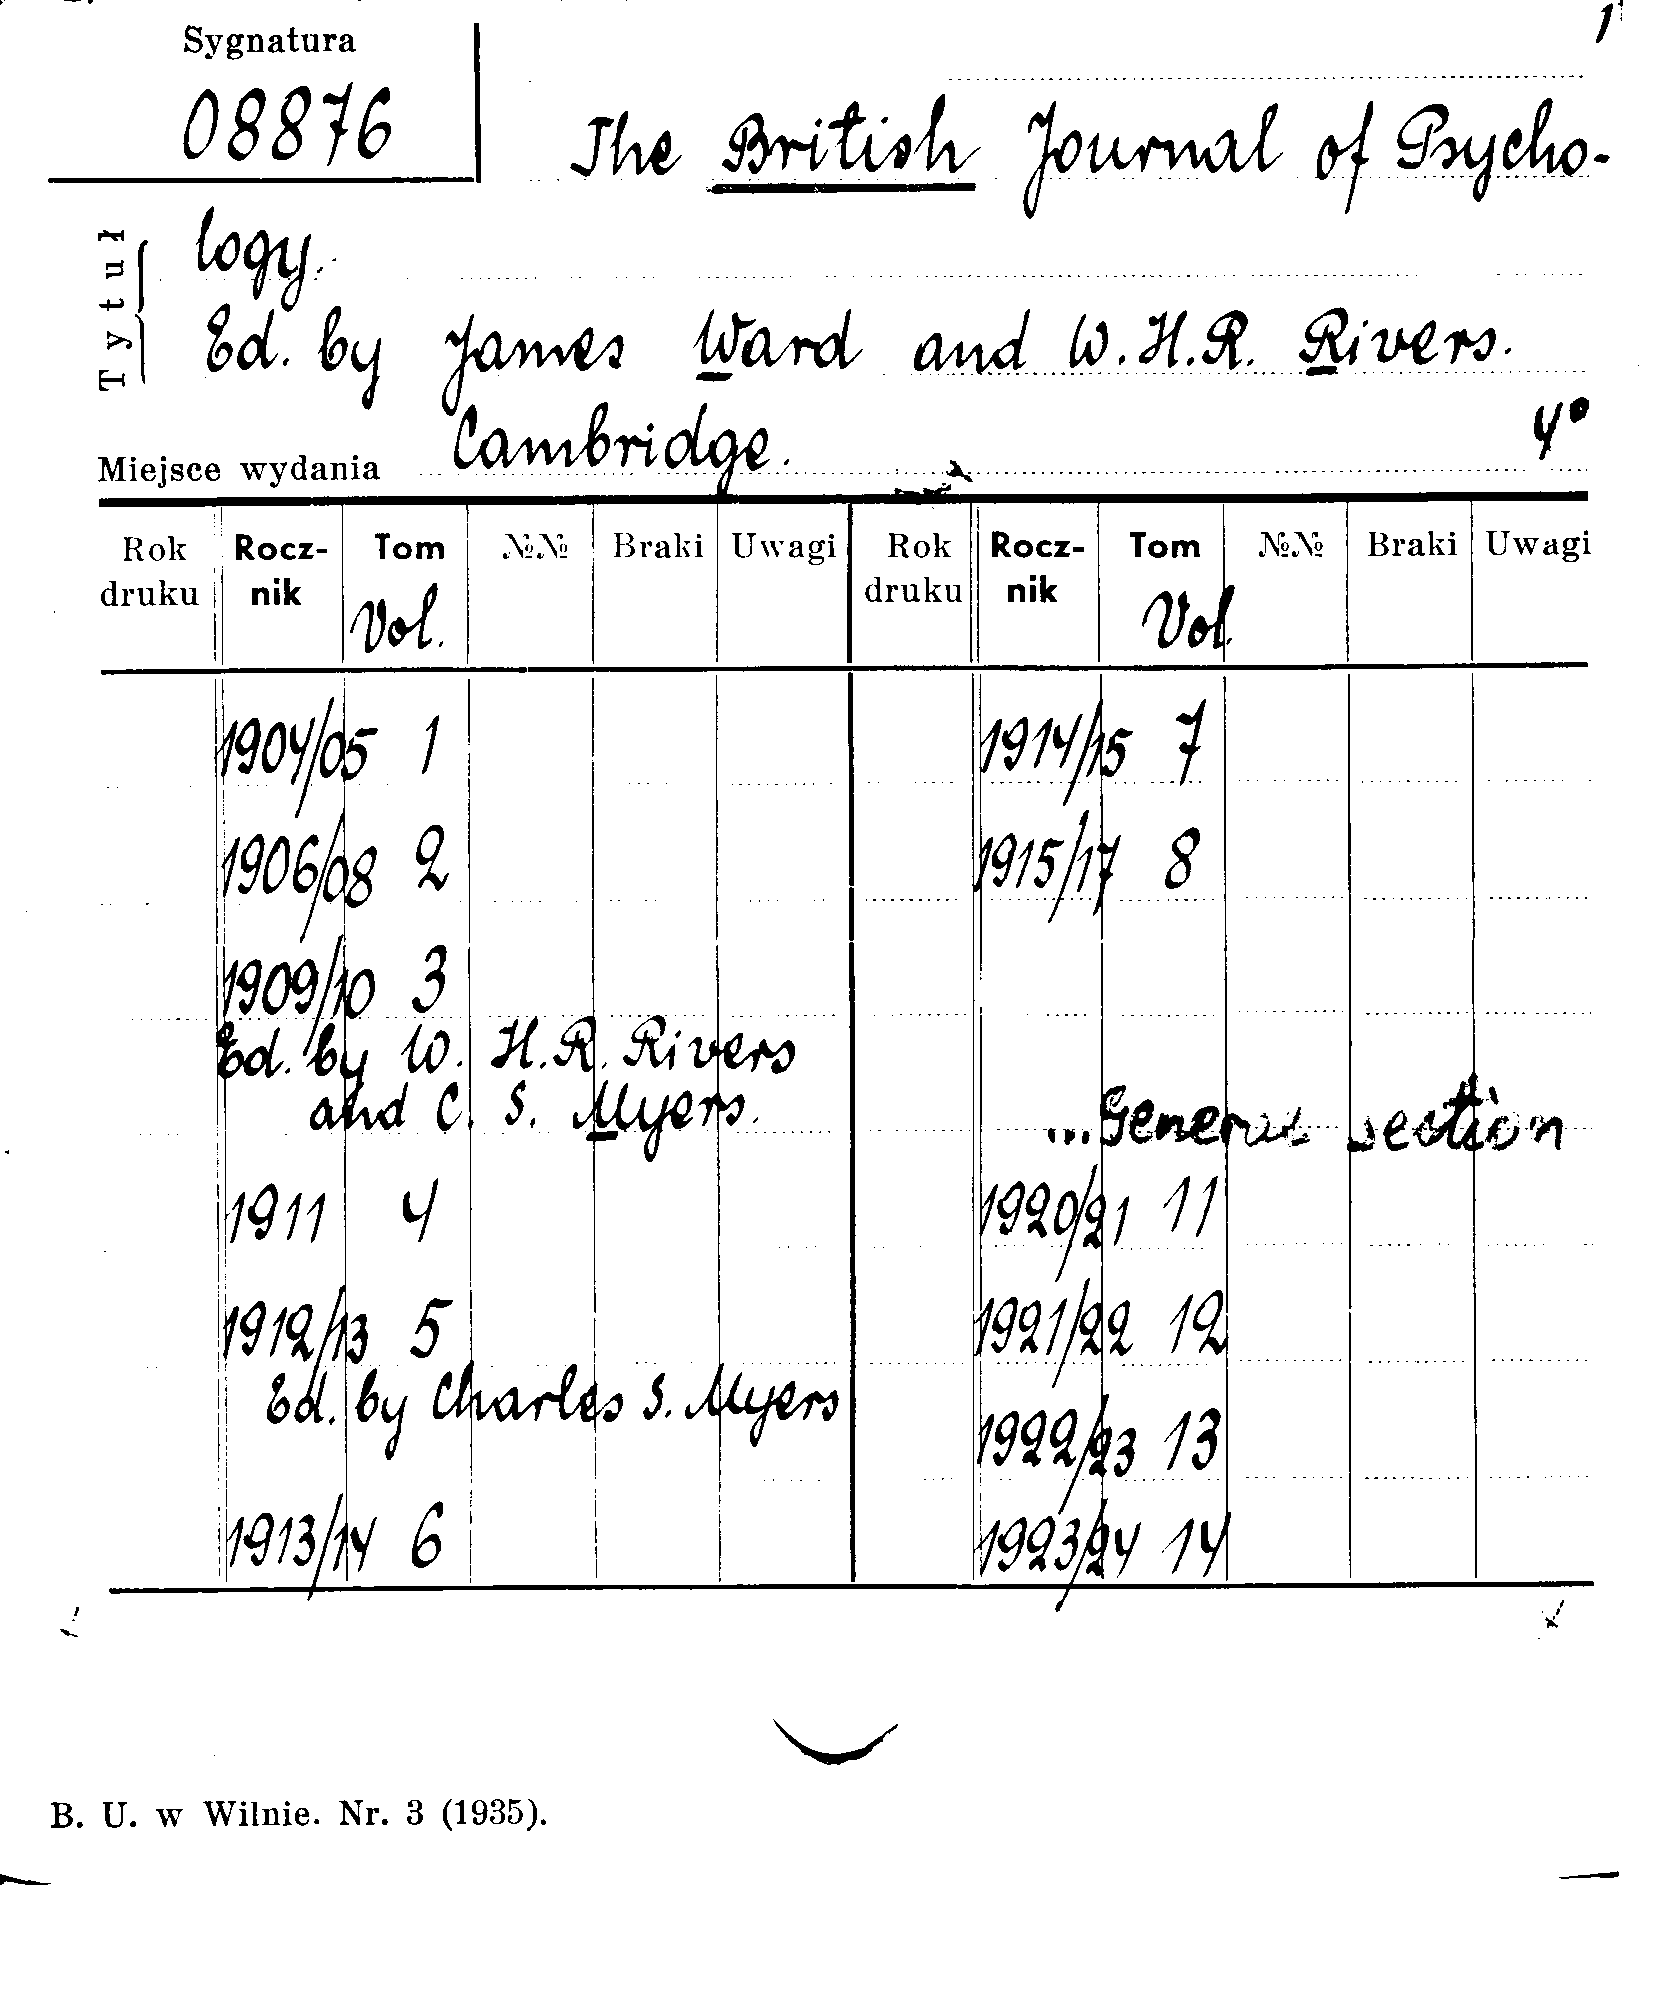 1
Sygnatura
08876
The British Journal of Psycho-
logy.
Tytuł
Ed. by James Ward and W. H. R. Rivers.
Miejsce wydania Cambridge. 4°
Rok druku Rocz-nik Tom №№ Braki Uwagi Rok druku Rocz-nik Tom №№ Braki Uwagi
Vol. Vol.
1904/05 1
1906/08 2
1909/10 3
Ed. by W. H. R. Rivers
and C. S. Myers.
1911 4
1912/13 5
Ed. by Charles S. Myers
1913/14 6
1914/15 7
1915/17 8
...General section
1920/21 11
1921/22 12
1922/23 13
1923/24 14
B. U. w Wilnie. Nr. 3 (1935).